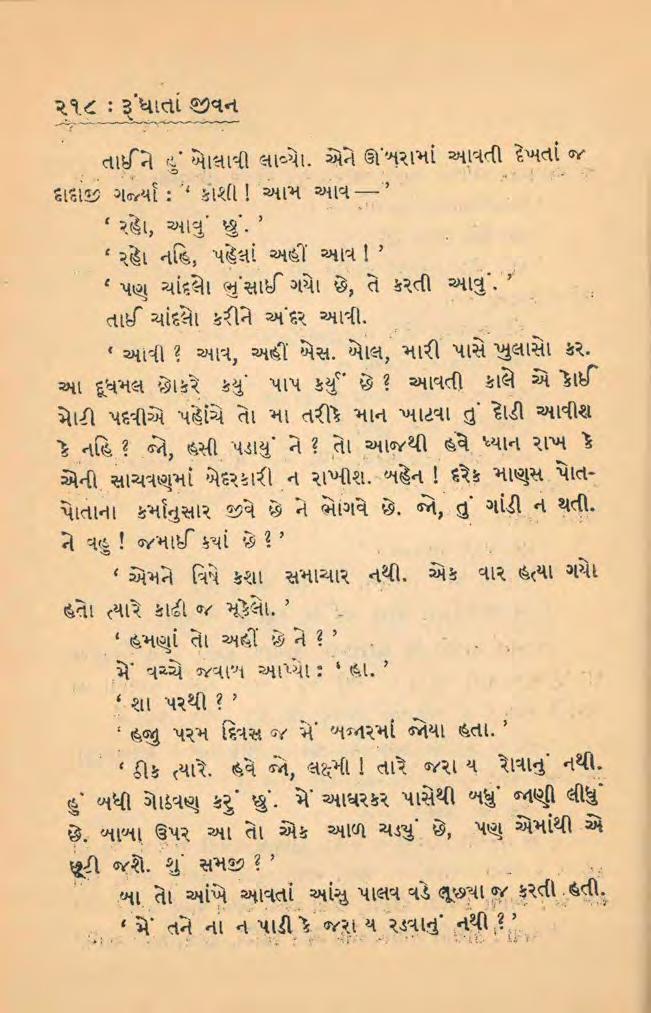 ૨૧૮ : રૂંધાતાં જીવન
તાઈને હું બોલાવી લાવ્યો. એને ઊંબરામાં આવતી દેખતાં જ
દાદાજી ગર્જ્યા : ‘ કાશી ! આમ આવ —’
‘ રહો, આવું છું. ’
‘ રહો નહિ, પહેલાં અહીં આવ ! ’
‘ પણ ચાંદલો ભુંસાઈ ગયો છે, તે કરતી આવું. ’
તાઈ ચાંદલો કરીને અંદર આવી.
‘ આવી ? આવ, અહીં બેસ. બોલ, મારી પાસે ખુલાસો કર.
આ દૂધમલ છોકરે કયું પાપ કર્યું છે ? આવતી કાલે એ કોઈ
મોટી પદવીએ પહોંચે તો મા તરીકે માન ખાટવા તું દોડી આવીશ
કે નહિ ? જો, હસી પડાયું ને ? તો આજથી હવે ધ્યાન રાખ કે
એની સાચવણમાં બેદરકારી ન રાખીશ. બહેન ! દરેક માણસ પોત-
પોતાના કર્માનુસાર જીવે છે ને ભોગવે છે. જો, તું ગાંડી ન થતી.
ને વહુ ! જમાઈ ક્યાં છે ? ’
‘ એમને વિષે કશા સમાચાર નથી. એક વાર હત્યા ગયો
હતો ત્યારે કાઢી જ મૂકેલો. ’
‘ હમણાં તો અહીં છે ને ? ’
મેં વચ્ચે જવાબ આપ્યો : ‘ હા. ’
‘ શા પરથી ? ’
‘ હજી પરમ દિવસ જ મેં બજારમાં જોયા હતા. ’
‘ ઠીક ત્યારે. હવે જો, લક્ષ્મી ! તારે જરા ય રોવાનું નથી.
હું બધી ગોઠવણ કરું છું. મેં આઘરકર પાસેથી બધું જાણી લીધું
છે. બાબા ઉપર આ તો એક આળ ચડ્યું છે, પણ એમાંથી એ
છૂટી જશે. શું સમજી ? ’
બા તો આંખે આવતાં આંસુ પાલવ વડે લૂછ્યા જ કરતી હતી.
‘ મેં તને ના ન પાડી કે જરા ય રડવાનું નથી ? ’